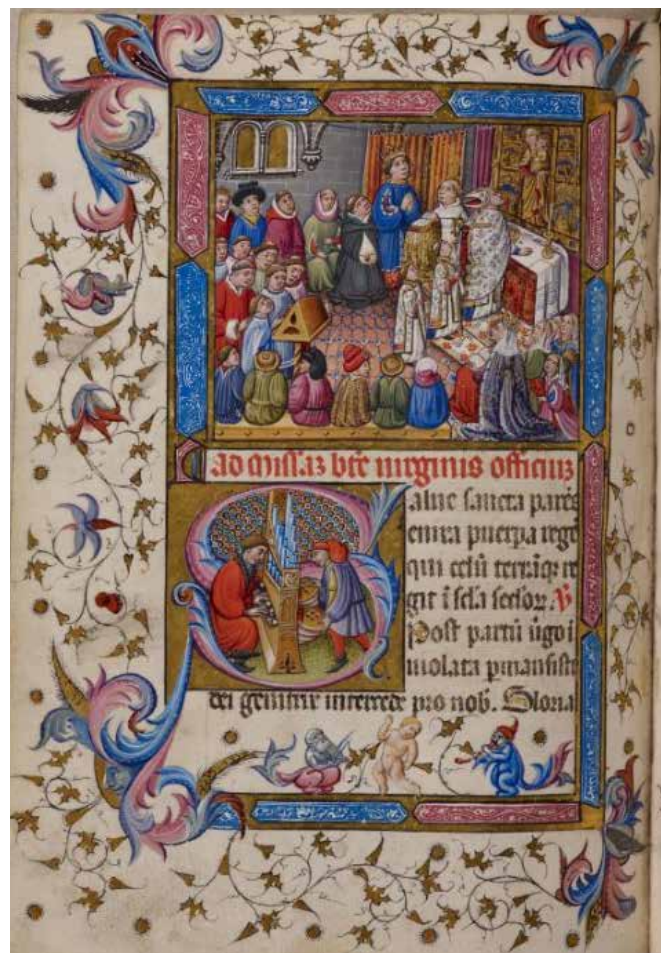 ad missaz bte virginis officiuz
alve sancta parēs
enixa puerpa regē
qui celū terrāq; re
git ī scla sclor. V
Post partū v̄go ī
violata pmansisti
dei genitrix intercede pro nob. Gloria